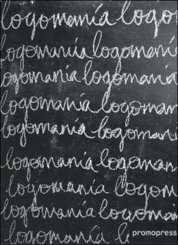 logomanía logo
logomanía logomaní
logomanía logomanía
logomanía logoman
logomanía logomaní
logomanía logoman
logomanía logoman
logomanía logoma
logomanía l
promopress